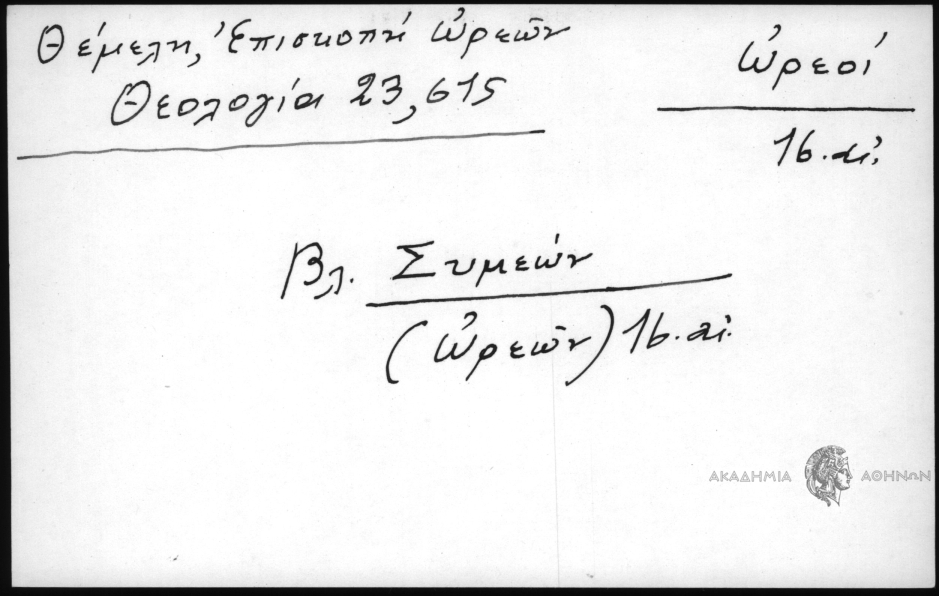 Θέμελη, Ἐπισκοπή Ὠρεῶν
Θεολογία 23, 615
Ὠρεοί
16. αἰ.
Βλ. Συμεών
(Ὠρεῶν) 16. αἰ.
ΑΚΑΔΗΜΙΑ ΑΘΗΝΩΝ